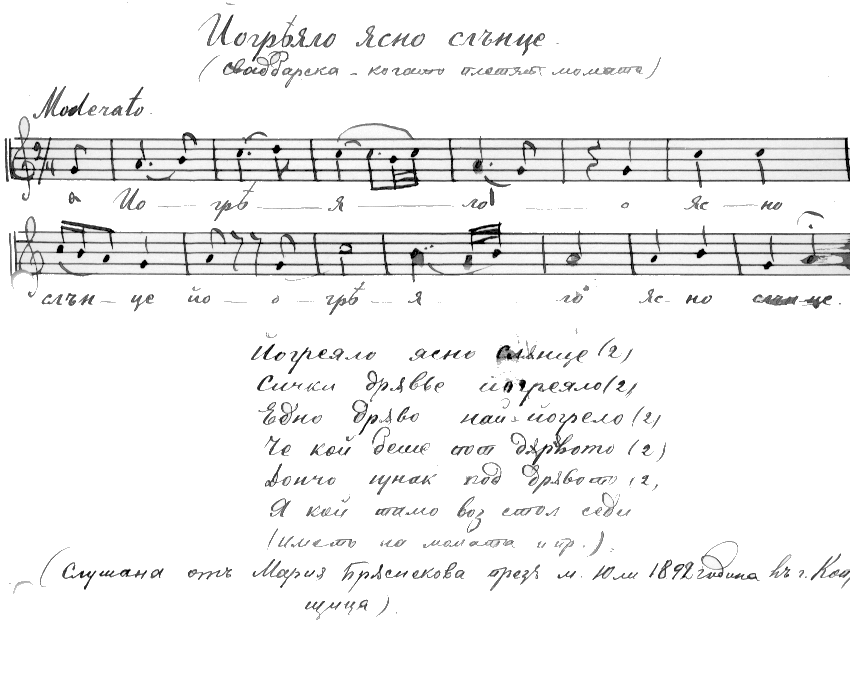 Йогрѣяло ясно слънце.
(Свадбарска - когато плетятъ момата)
Moderato.
а Йо - грѣ - я - ло - о яс - но
слън - це йо - о - грѣ - я - ло яс - но слън-це.
Йогреяло ясно слянце (2)
Сички дрявье йогреяло (2)
Едно дряво най-йогрело (2)
Че кой беше тот дярвото (2)
Дончо юнак под дрявото (2,
Я кой тамо воз стол седи
(името на момата и пр.).
(Слушана отъ Мария презъ м. Юли 1892 година въ г. Коп,
щица).